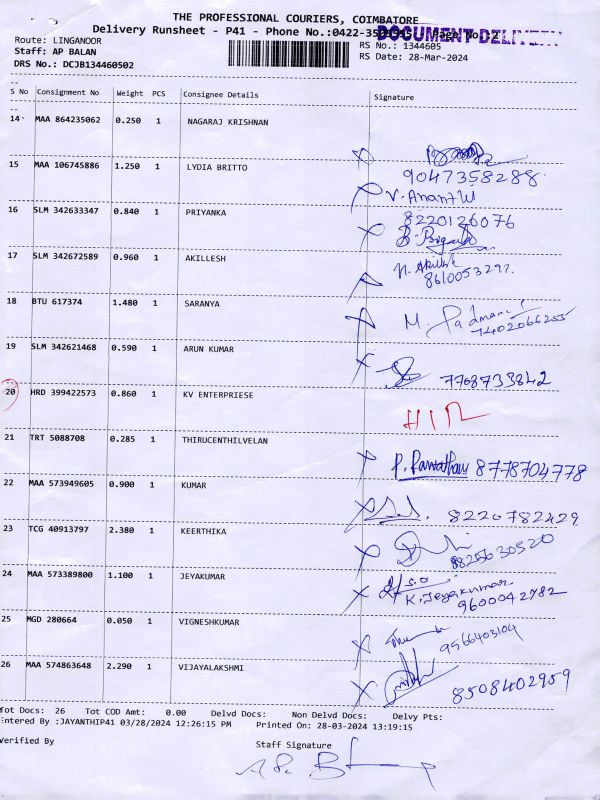 THE PROFESSIONAL COURIERS, COIMBATORE
Delivery Runsheet - P41 - Phone No.:0422- Page No.:2
DOCUMENT DELIVE
Route: LINGANOOR
RS No.: 1344605
Staff: AP BALAN
RS Date: 28-Mar-2024
DRS No.: DCJB134460502
S No Consignment No Weight PCS Consignee Details Signature
14 MAA 864235062 0.250 1 NAGARAJ KRISHNAN
9047358288
15 MAA 106745886 1.250 1 LYDIA BRITTO
V. Ananthi
8220126076
16 SLM 342633347 0.840 1 PRIYANKA
17 SLM 342672589 0.960 1 AKILLESH
N. Akillesh
8610053297.
18 BTU 617374 1.480 1 SARANYA
M. Padmani
7402066255
19 SLM 342621468 0.590 1 ARUN KUMAR
7708733842
20 HRD 399422573 0.860 1 KV ENTERPRIESE
21 TRT 5088708 0.285 1 THIRUCENTHILVELAN
P. 8778704778
22 MAA 573949605 0.900 1 KUMAR
8220782429
23 TCG 40913797 2.380 1 KEERTHIKA
8825630520
24 MAA 573389800 1.100 1 JEYAKUMAR
S/O
K. Jeyakumar
9600042782
25 MGD 280664 0.050 1 VIGNESHKUMAR
9566403104
26 MAA 574863648 2.290 1 VIJAYALAKSHMI
8508402959
Tot Docs: 26 Tot COD Amt: 0.00 Delvd Docs: Non Delvd Docs: Delvy Pts:
Entered By :JAYANTHIP41 03/28/2024 12:26:15 PM Printed On: 28-03-2024 13:19:15
Verified By
Staff Signature